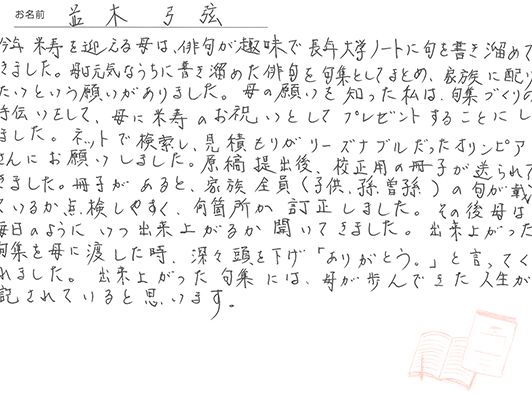 お名前 並木 弓弦
今年米寿を迎える母は、俳句が趣味で長年大学ノートに句を書き溜めて
きました。母は元気なうちに書き溜めた俳句を句集としてまとめ、家族に配り
たいという願いがありました。母の願いを知った私は、句集づくりの
手伝いをして、母に米寿のお祝いとしてプレゼントすることにし
ました。ネットで検索し、見積もりがリーズナブルだったオリンピア
さんにお願いしました。原稿提出後、校正用の冊子が送られて
きました。冊子があると、家族全員(子供、孫、曽孫)の句が載っ
ているか点検しやすく、何箇所か訂正しました。その後母は
毎日のようにいつ出来上がるか聞いてきました。出来上がった
句集を母に渡した時、深々頭を下げ「ありがとう。」と言ってく
れました。出来上がった句集には、母が歩んできた人生が
記されていると思います。